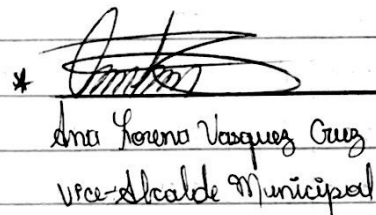 *
Ana Lorena Vasquez Cruz
Vice-Alcalde Municipal